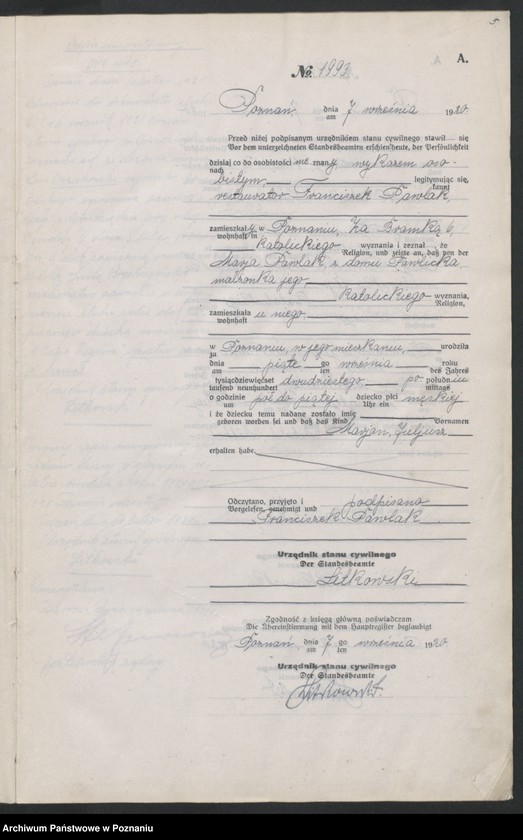 5
A.
№ 1992
Poznań, dnia 7 września 1920
am
Przed niżej podpisanym urzędnikiem stanu cywilnego stawił się
Vor dem unterzeichneten Standesbeamten erschien heute, der Persönlichkeit
dzisiaj co do osobistości nie znany, wykazem oso-
nach
bistym legitymując się,
kannt
restaurator Franciszek Pawlak,
zamieszkały w Poznaniu, Za Bramką 6,
wohnhaft in
katolickiego wyznania i zeznał, że
Religion, und zeigte an, daß von der
Marja Pawlak, z domu Pawlicka,
małżonka jego
katolickiego wyznania,
Religion,
zamieszkała u niego,
wohnhaft
w Poznaniu, w jego mieszkaniu, urodziła
zu
dnia piąte go września roku
am ten des Jahres
tysiącdziewięćset dwudziestego po południu
tausend neunhundert mittags
o godzinie pół do piątej dziecko płci męskiej
um Uhr ein
i że dziecku temu nadane zostało imię
geboren worden sei und daß das Kind Vornamen
Marjan, Juljusz
erhalten habe.
Odczytano, przyjęto i podpisano
Vorgelesen, genehmigt und
Franciszek Pawlak
Urzędnik stanu cywilnego
Der Standesbeamte
Zgodność z księgą główną poświadczam
Die Übereinstimmung mit dem Hauptregister beglaubigt
Poznań, dnia 7 go września 1920
am ten
Urzędnik stanu cywilnego
Der Standesbeamte
Archiwum Państwowe w Poznaniu